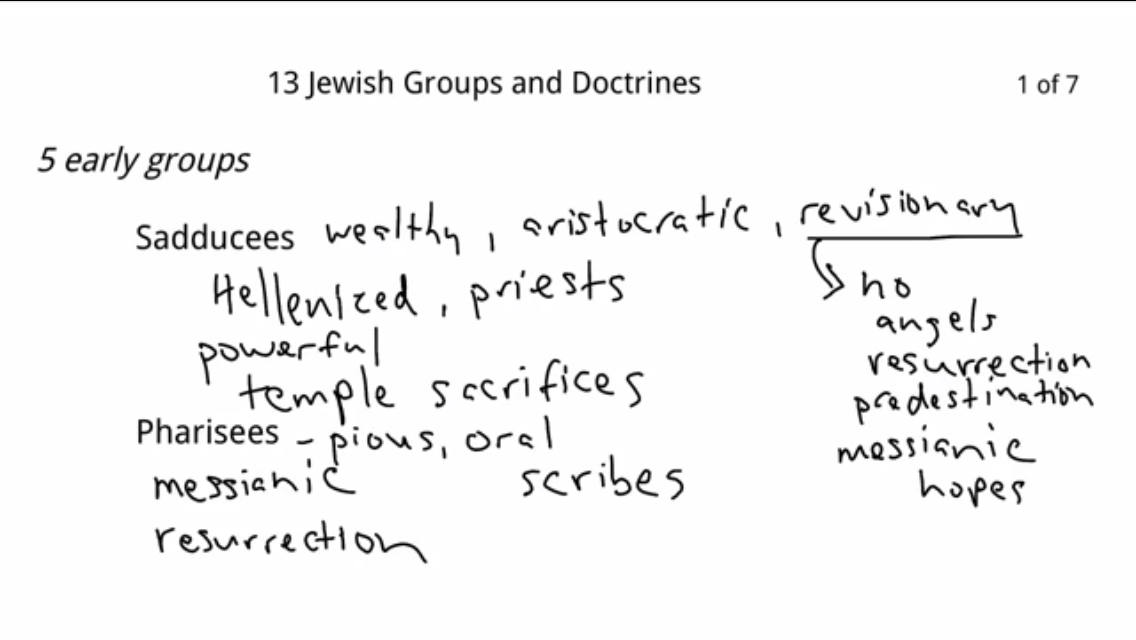 13 Jewish Groups and Doctrines
1 of 7
5 early groups
Sadducees wealthy, aristocratic, revisionary
Hellenized, priests
powerful
temple sacrifices
no
angels
resurrection
predestination
messianic
hopes
Pharisees – pious, oral
messianic scribes
resurrection